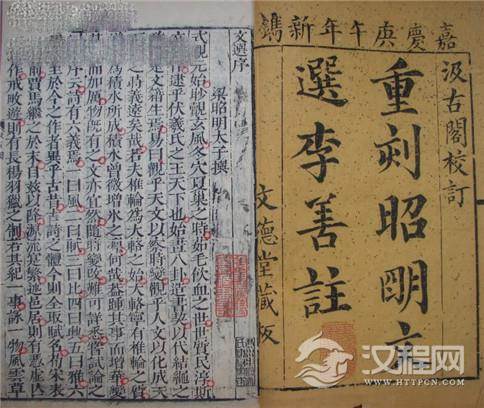 嘉慶庚午年新鐫
汲古閣校訂
重刻昭明文
選李善註
文德堂藏板
文選序
梁昭明太子撰
式觀元始眇覿玄風冬穴夏巢之時茹毛飲血之世世質民淳斯
逮乎伏羲氏之王天下也始畫八卦造書契以代結繩之
是文籍生焉易曰觀乎天文以察時變觀乎人文以化成天
時義遠矣哉若夫椎輪為大輅之始大輅寧有椎輪之質
為積水所成積水曾微增冰之凜何哉蓋踵其事而增華變
而加厲物既有之文亦宜然隨時變改難可詳悉嘗試論之
云詩有六義焉一曰風二曰賦三曰比四曰興五曰雅六
至於今之作者異乎古昔古詩之體今則全取賦名荀宋表
前賈馬繼之於末自茲以降源流寔繁述邑居則有憑虛亡
作戒畋遊則有長楊羽獵之制若其紀一事詠一物風雲草
汉程网
WWW.HTTPCN.COM